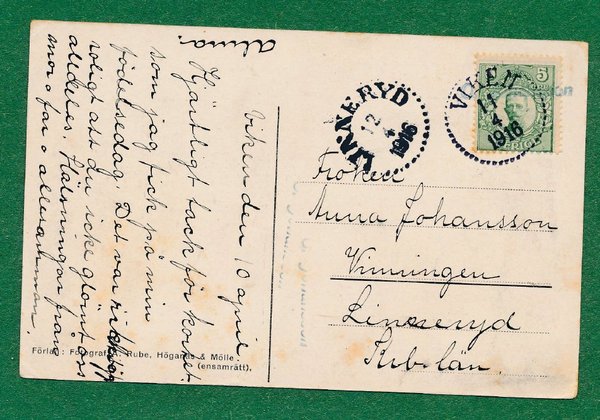 Viken den 10 april
Hjärtligt tack för kortet
som jag fick på min
födelsedag. Det var riktigt
roligt att du icke glömt oss
alldeles. Hälsningar från
mor o far o allesamman.
Alma
Förlag: Fotograf Rube, Höganäs & Mölle.
(ensamrätt).
LINNERYD
12
4
1916
VIKEN
11
4
1916
5
Fröken
Anna Johansson
Vinningen
Linneryd